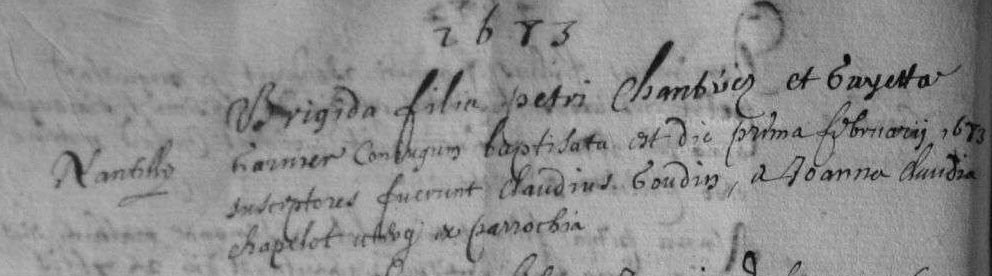 1673
Brigida filia petri Chanbriez et Gugetta
Nantilly
Garnier Coniugum baptisata est die prima februarij 1673
susceptores fuerunt Claudius Goudin, a Joanna Claudia
chapelot utrq ex parrochia